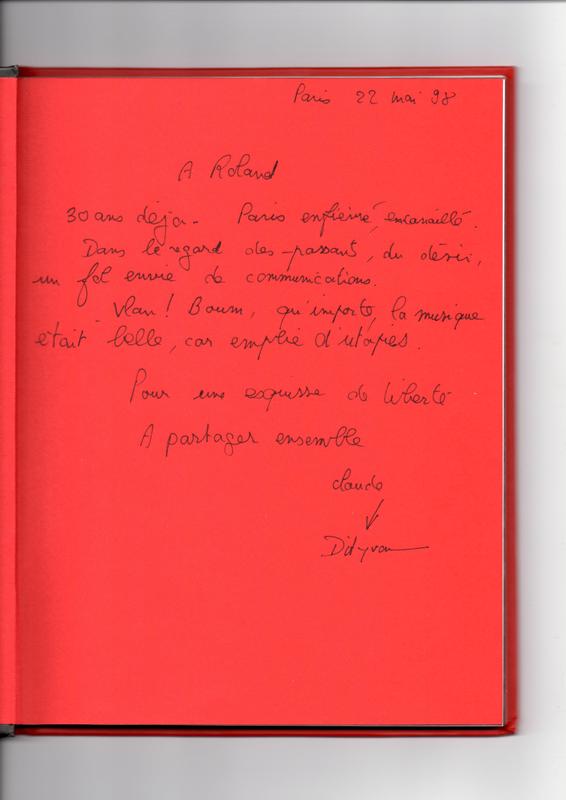 Paris 22 mai 98
A Roland
30 ans déja - Paris enfiévré, encanaillé.
Dans le regard des passants, du désir,
un fol envie de communications.
Vlan! Boum, qu'importe, la musique
était belle, car emplie d'utopies.
Pour une esquisse de liberté
A partager ensemble
Claude
Dityvon